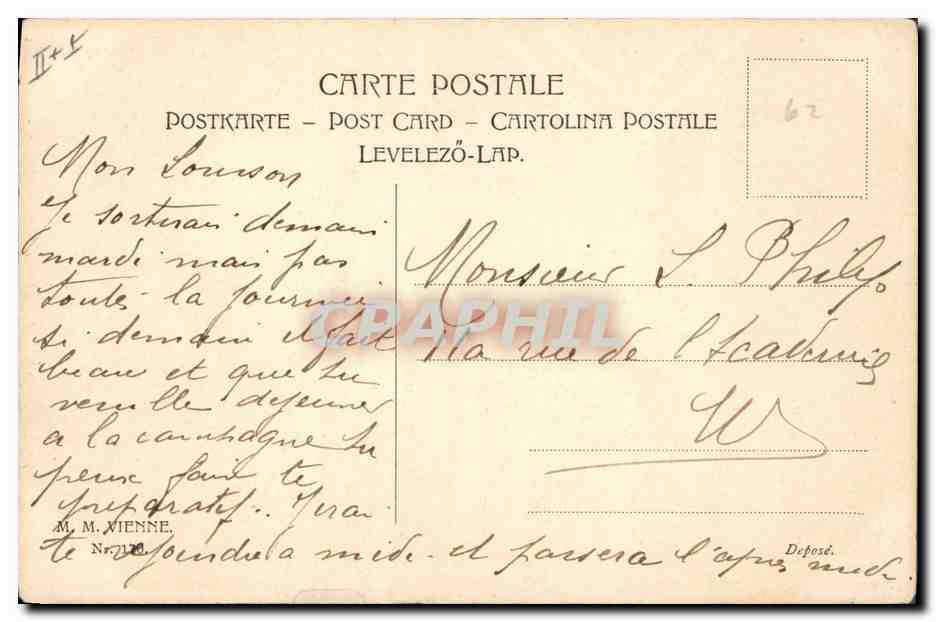 II + I
62
CARTE POSTALE
POSTKARTE – POST CARD – CARTOLINA POSTALE
LEVELEZŐ-LAP.
Mon Louison
Je sortirai demain
mardi mais pas
toute la journée
si demain il fait
beau et que tu
veuille dejeuner
a la campagne tu
peux faire te
preparatif. J'irai
te rejoindre a midi et passera l'apres midi.
Monsieur L. Philip
11a rue de l'Academie
M. M. VIENNE.
Nr.
Deposé.
CPAPHIL